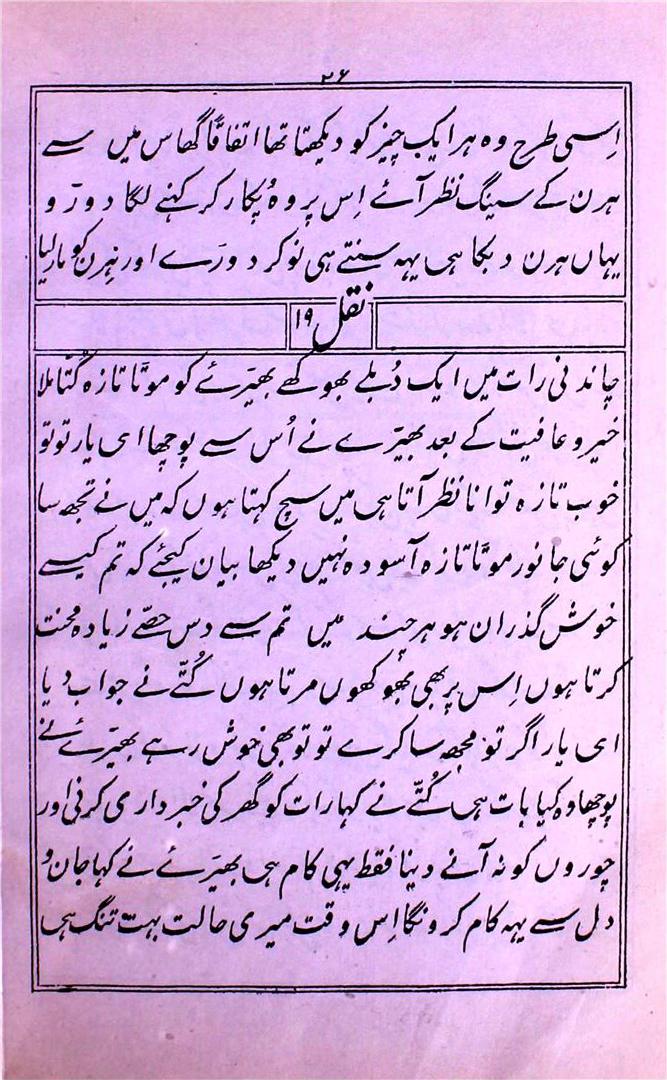 ۲۶
اِسی طرح وہ ہر ایک چیز کو دیکھتا تھا اتفاقًا گھاس میں سے
ہرن کے سینگ نظر آئے اِس پر وہُ پکار کر کہنے لگا دورَ و
یہاں ہرن دبکا ہی یہہ سنتے ہی نوکر دورَے اور ہرن کو مار لیا
نقل ۱۹
چاندنی رات میں ایک دُبلے بھوکھے بھیڑئے کو موٹا تازہ کُتّا ملا
خیر و عافیت کے بعد بھیڑے نے اُس سے پوچھا ای یار تو تو
خوب تازہ توانا نظر آتا ہی میں سچ کہتا ہوں کہ میں نے تجھ سا
کوئی جانور موٹا تازہ آسودہ نہیں دیکھا بیان کیجئے کہ تم کیسے
خوش گذران ہو ہرچند میں تم سے دس حصّے زیادہ محنت
کرتا ہوں اِس پر بھی بھوکھوں مرتا ہوں کُتّے نے جواب دیا
ای یار اگر تو مجھ سا کرے تو تو بھی خوش رہے بھیڑئے نے
پوچھا وہ کیا بات ہی کُتّے نے کہا رات کو گھر کی خبرداری کرنی اور
چوروں کو نہ آنے دینا فقط یہی کام ہی بھیڑئے نے کہا جان و
دل سے یہہ کام کرونگا اِس وقت میری حالت بہت تنگ ہی